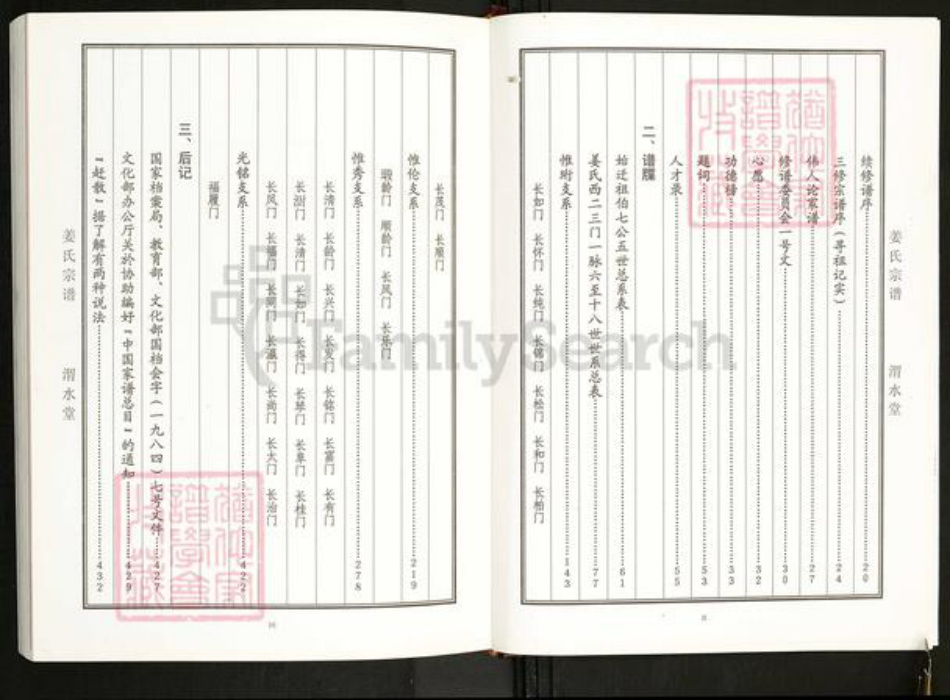 姜氏宗谱
渭水堂
续修谱序 20
三修宗谱序（寻祖记实） 24
伟人论家谱 27
修谱委员会一号文 30
心愿 32
功德榜 33
题词 53
人才录 55
二、谱牒
始迁祖伯七公五世总系表 61
姜氏西二三门一脉六至十八世世系总表 77
惟珩支系 143
长如门 长怀门 长纯门 长锦门 长松门 长和门 长柏门
II
长茂门 长顺门
惟伦支系 219
瑕龄门 顺龄门 长凤门 长乐门
惟秀支系 278
长清门 长龄门 长兴门 长发门 长铭门 长富门 长有门
长澍门 长清门 长如门 长得门 长琴门 长阜门 长桂门
长凤门 长福门 长同门 长瀛门 长尚门 长大门 长治门
光铭支系 422
福履门
三、后记
国家档案局、教育部、文化部国档会字（一九八四）七号文件 427
文化部办公厅关於协助编好"中国家谱总目"的通知 429
"赶散"据了解有两种说法 432
姜氏宗谱
渭水堂
III
FamilySearch